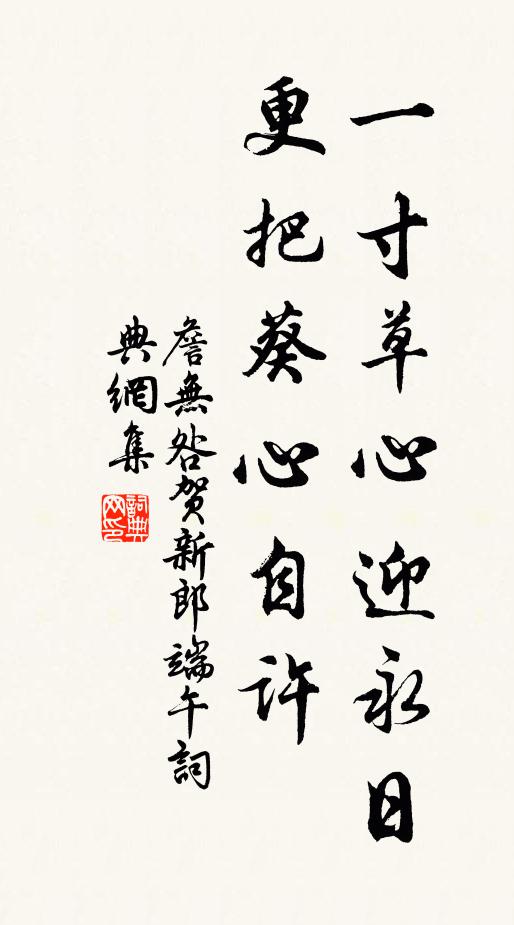 一寸草心迎永日
更把葵心自許
詹無咎贺新郎端午詞
典網集
詞典网印